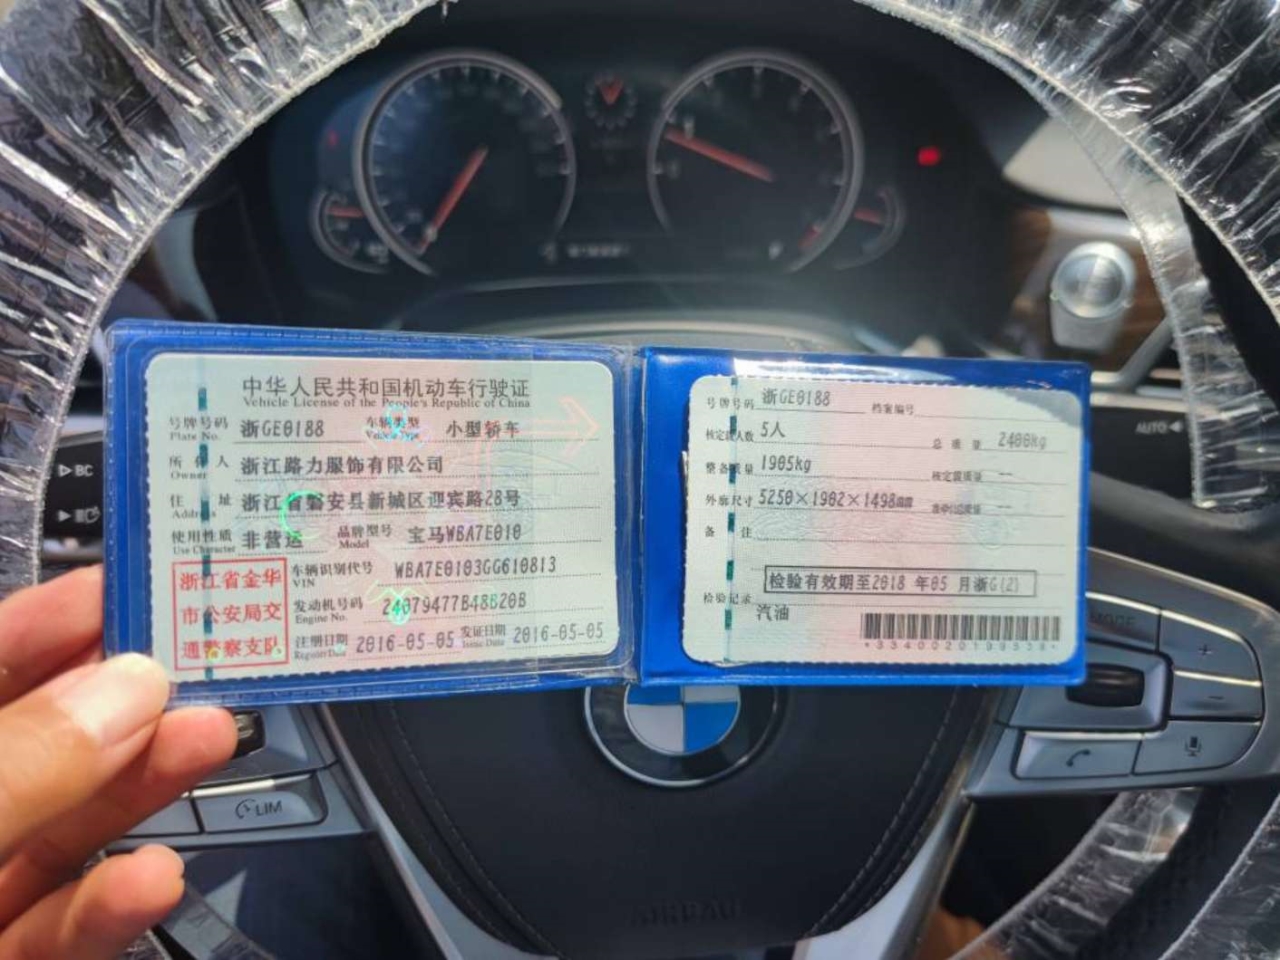 中华人民共和国机动车行驶证
Vehicle License of the People's Republic of China
号牌号码 浙GE0188 车辆类型 小型轿车
Plate No. Vehicle Type
所有人 浙江路力服饰有限公司
Owner
住址 浙江省磐安县新城区迎宾路28号
Address
使用性质 非营运 品牌型号 宝马WBA7E010
Use Character Model
浙江省金华
市公安局交
通警察支队
车辆识别代号 WBA7E0103GG610813
VIN
发动机号码 24079477B48B20B
Engine No.
注册日期 2016-05-05 发证日期 2016-05-05
Register Date Issue Date
号牌号码 浙GE0188 档案编号
核定载人数 5人 总质量 2400kg
整备质量 1905kg 核定载质量 --
外廓尺寸 5250×1902×1498mm --
备注
检验有效期至2018 年05 月浙G(2)
检验记录
汽油
BC
LIM
AUTO
MODE
AIRBAG